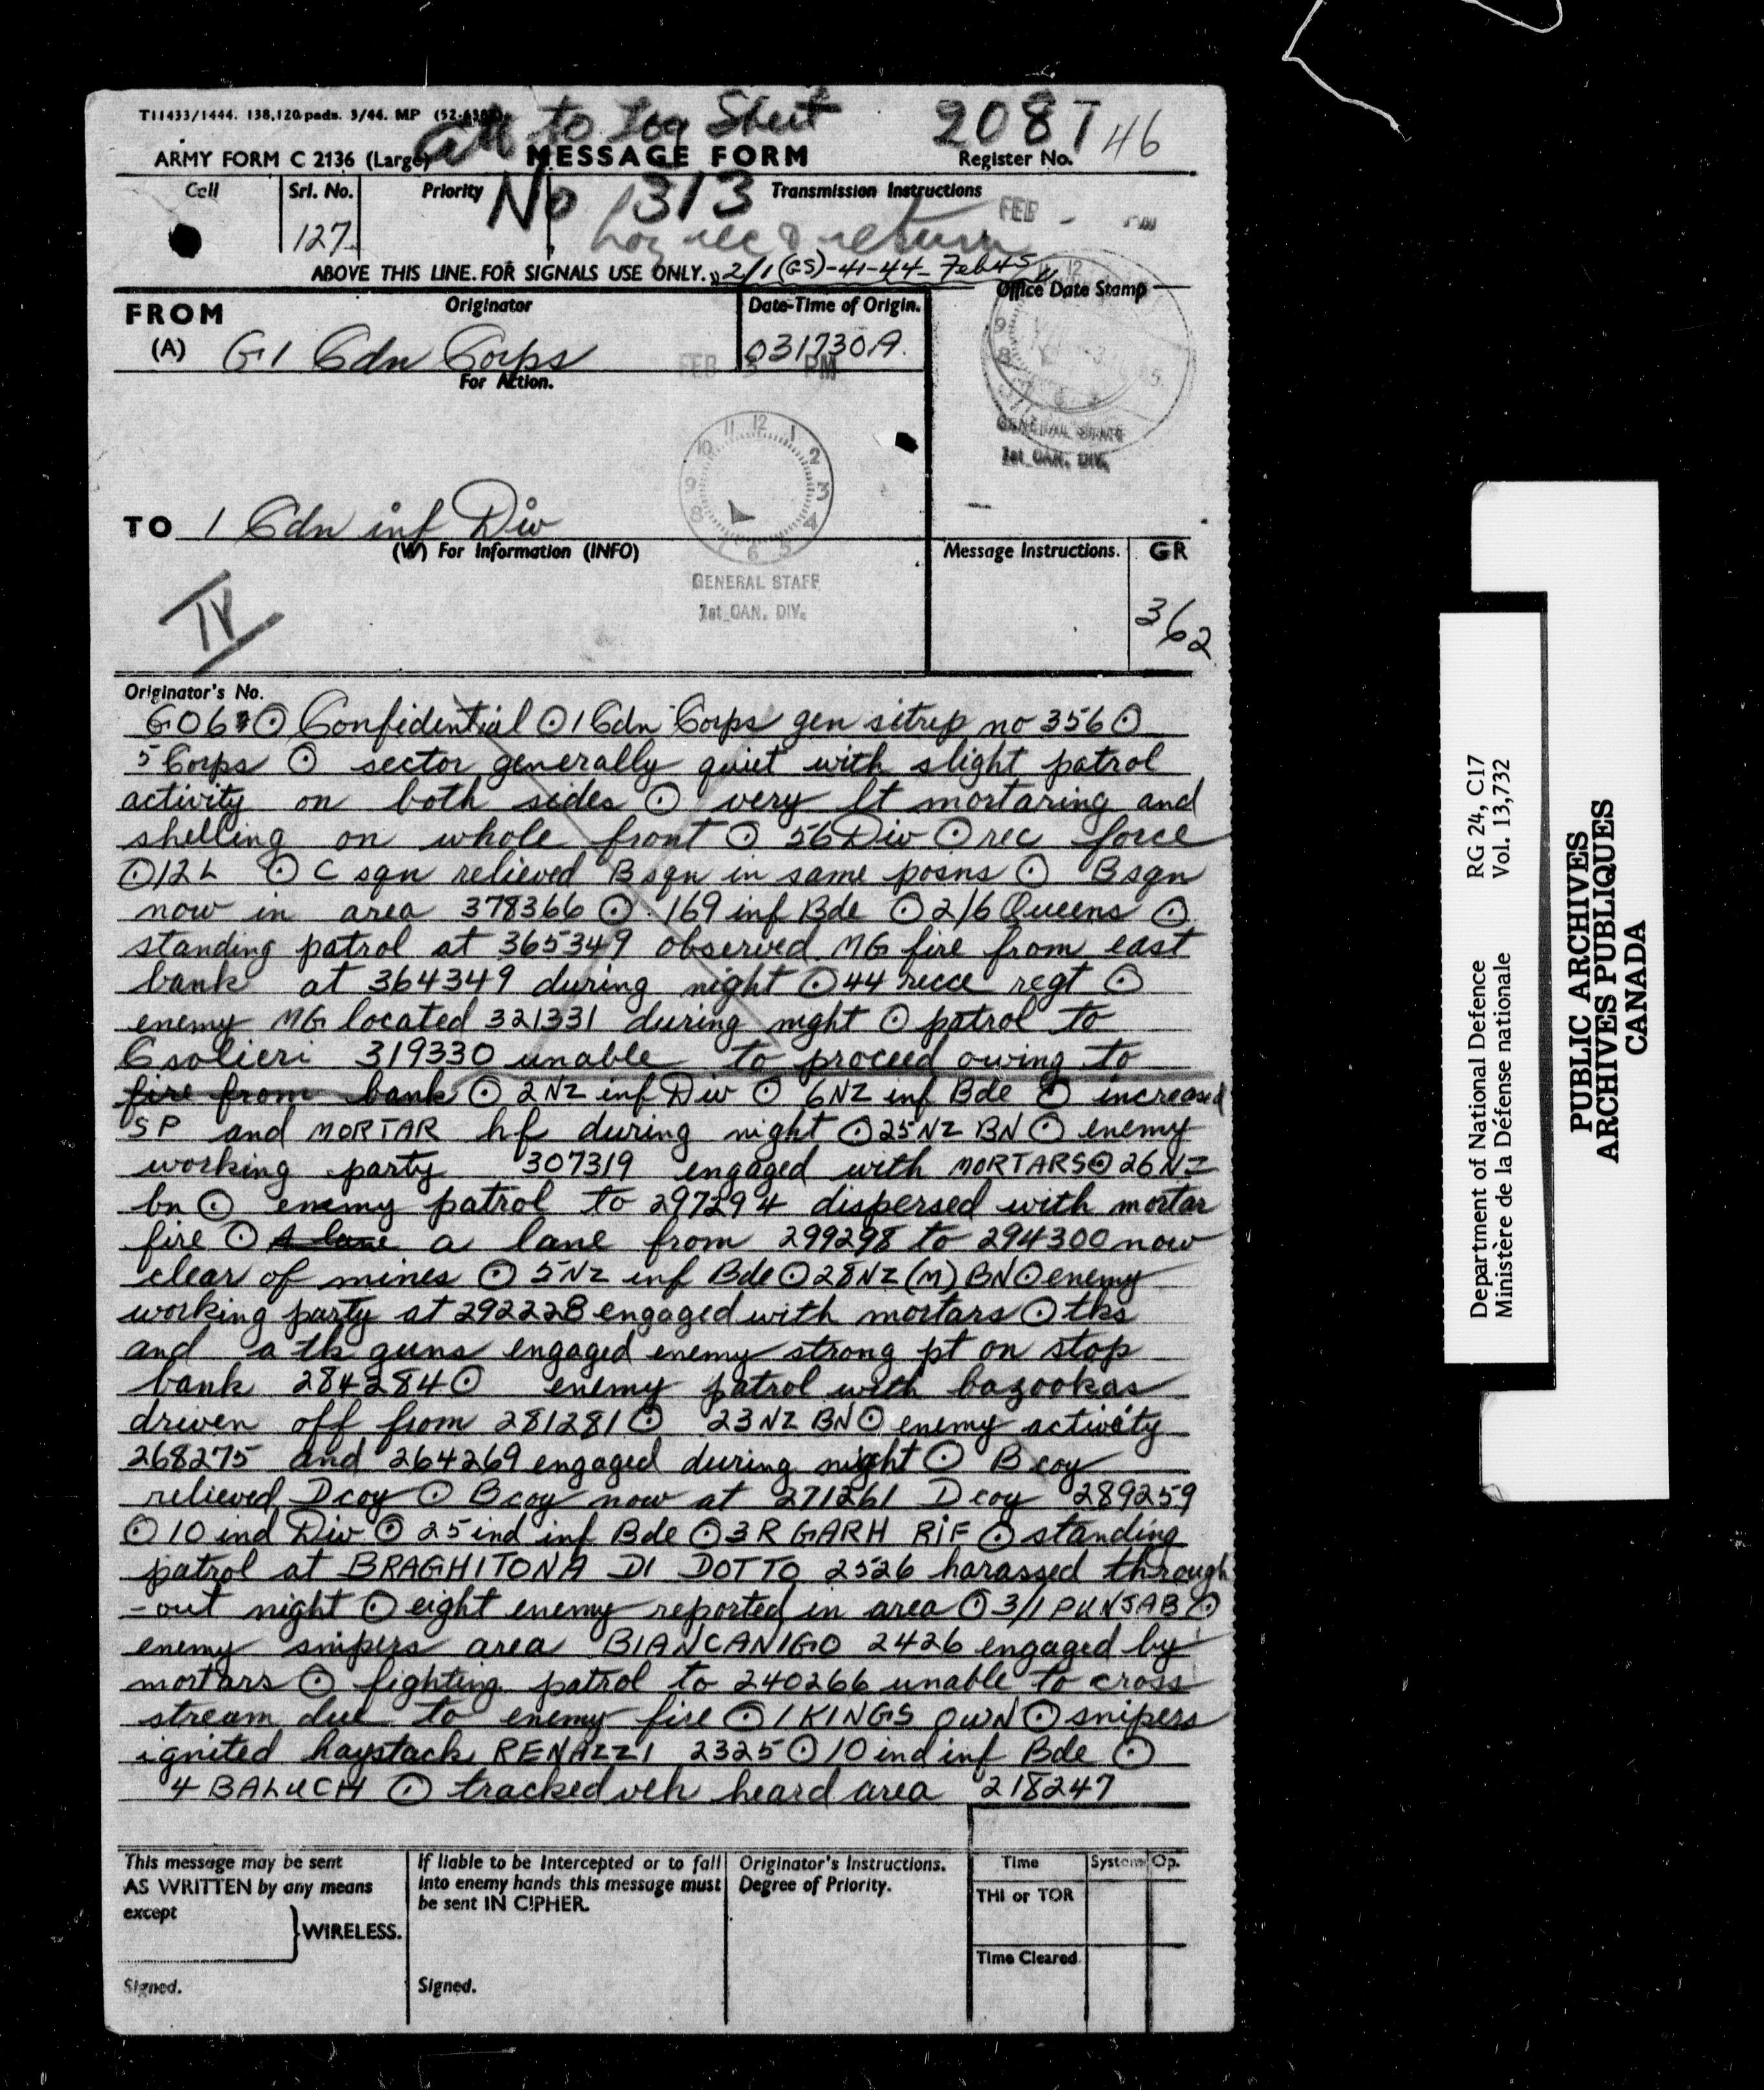 T11433/1444. 138,120 pads. 3/44. MP
att to Log Sheet
208T 46
ARMY FORM C 2136 (Large)
MESSAGE FORM
Register No.
Call
Srl. No.
Priority
No 1313
Transmission Instructions
FEB
127
return
ABOVE THIS LINE. FOR SIGNALS USE ONLY.
2/1(GS)-41-44-Feb45
FROM
Originator
Date-Time of Origin.
Office Date Stamp
(A) G 1 Cdn Corps
031730A.
FEB 3 PM
For Action.
GENERAL STAFF
1st CAN. DIV.
TO 1 Cdn inf Div
(W) For Information (INFO)
Message Instructions.
GR
GENERAL STAFF
1st CAN. DIV.
IV
362
Originator's No.
⊙ Confidential ⊙ 1 Cdn Corps gen sitrep no 356 ⊙
5 Corps ⊙ sector generally quiet with slight patrol
activity on both sides ⊙ very lt mortaring and
shelling on whole front ⊙ 56 Div ⊙ rec force
⊙ 12 L ⊙ C sqn relieved B sqn in same posns ⊙ B sqn
now in area 378366 ⊙ 169 inf Bde ⊙ 2/6 Queens ⊙
standing patrol at 365349 observed MG fire from east
bank at 364349 during night ⊙ 44 recce regt ⊙
enemy MG located 321331 during night ⊙ patrol to
Csolieri 319330 unable to proceed owing to
fire from bank ⊙ 2 NZ inf Div ⊙ 6 NZ inf Bde ⊙ increased
SP and MORTAR hf during night ⊙ 25 NZ BN ⊙ enemy
working party 307319 engaged with MORTARS ⊙ 26 NZ
bn ⊙ enemy patrol to 297294 dispersed with mortar
fire ⊙ A lane a lane from 299298 to 294300 now
clear of mines ⊙ 5 NZ inf Bde ⊙ 28 NZ (M) BN ⊙ enemy
working party at 292228 engaged with mortars ⊙ tks
and a tk guns engaged enemy strong pt on stop
bank 284284 ⊙ enemy patrol with bazookas
driven off from 281281 ⊙ 23 NZ BN ⊙ enemy activity
268275 and 264269 engaged during night ⊙ B coy
relieved D coy ⊙ B coy now at 271261 D coy 289259
⊙ 10 ind Div ⊙ 25 ind inf Bde ⊙ 3 R GARH RIF ⊙ standing
patrol at BRAGHITONA DI DOTTO 2526 harassed through
-out night ⊙ eight enemy reported in area ⊙ 3/1 PUNJAB ⊙
enemy snipers area BIANCANIGO 2426 engaged by
mortars ⊙ fighting patrol to 240266 unable to cross
stream due to enemy fire ⊙ 1 KINGS OWN ⊙ snipers
ignited haystack RENAZZI 2325 ⊙ 10 ind inf Bde ⊙
4 BALUCH ⊙ tracked veh heard area 218247
This message may be sent
AS WRITTEN by any means
except
WIRELESS.
Signed.
If liable to be intercepted or to fall
into enemy hands this message must
be sent IN CIPHER.
Signed.
Originator's Instructions.
Degree of Priority.
Time
System
Op.
THI or TOR
Time Cleared
Department of National Defence
Ministère de la Défense nationale
RG 24, C17
Vol. 13,732
PUBLIC ARCHIVES
ARCHIVES PUBLIQUES
CANADA